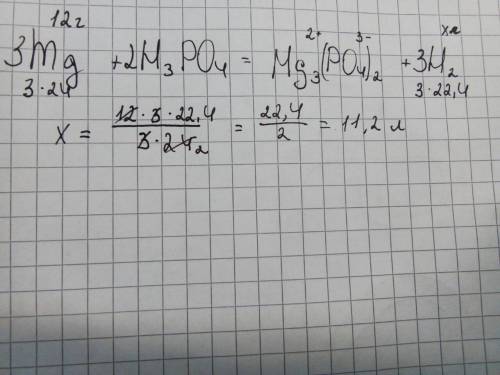 12г 2+ 3- xл
3Mg + 2H₃PO₄ = Mg₃(PO₄)₂ + 3H₂
3·24 3·22,4
x = 12·3·22,4 / 3·24 2 = 22,4 / 2 = 11,2 л